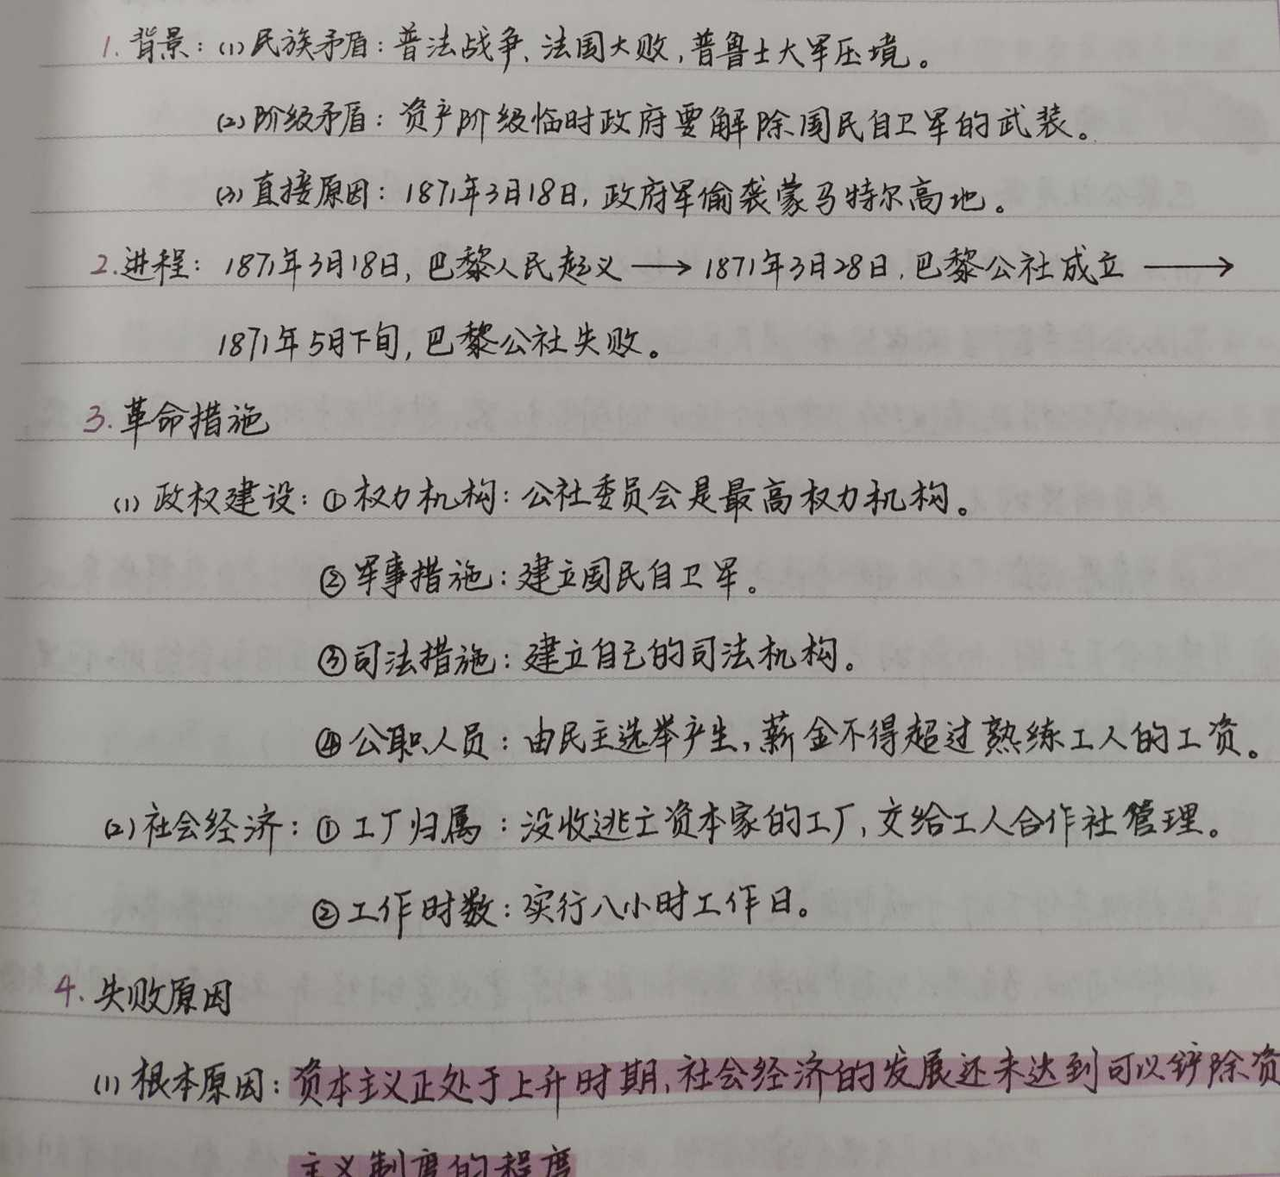 1. 背景：(1) 民族矛盾：普法战争、法国大败，普鲁士大军压境。
(2) 阶级矛盾：资产阶级临时政府要解除国民自卫军的武装。
(3) 直接原因：1871年3月18日，政府军偷袭蒙马特尔高地。
2. 进程：1871年3月18日，巴黎人民起义 → 1871年3月28日，巴黎公社成立 →
1871年5月下旬，巴黎公社失败。
3. 革命措施
(1) 政权建设：① 权力机构：公社委员会是最高权力机构。
② 军事措施：建立国民自卫军。
③ 司法措施：建立自己的司法机构。
④ 公职人员：由民主选举产生，薪金不得超过熟练工人的工资。
(2) 社会经济：① 工厂归属：没收逃亡资本家的工厂，交给工人合作社管理。
② 工作时数：实行八小时工作日。
4. 失败原因
(1) 根本原因：资本主义正处于上升时期，社会经济的发展还未达到可以铲除资
主义制度的程度